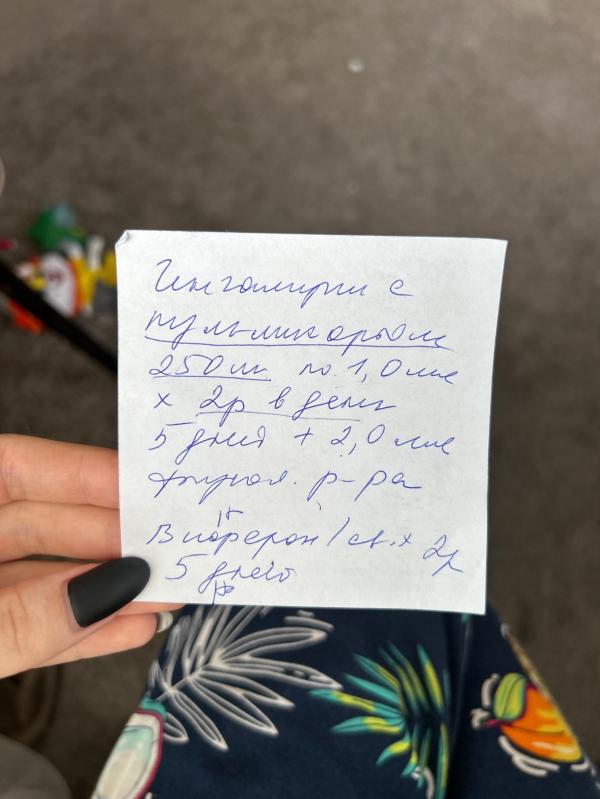 Ингаляции с
пульмикортом
250мк по 1,0 мл
х 2р в день
5 дней + 2,0 мл
физиол. р-ра
Виферон 1 св. х 2р
5 дней